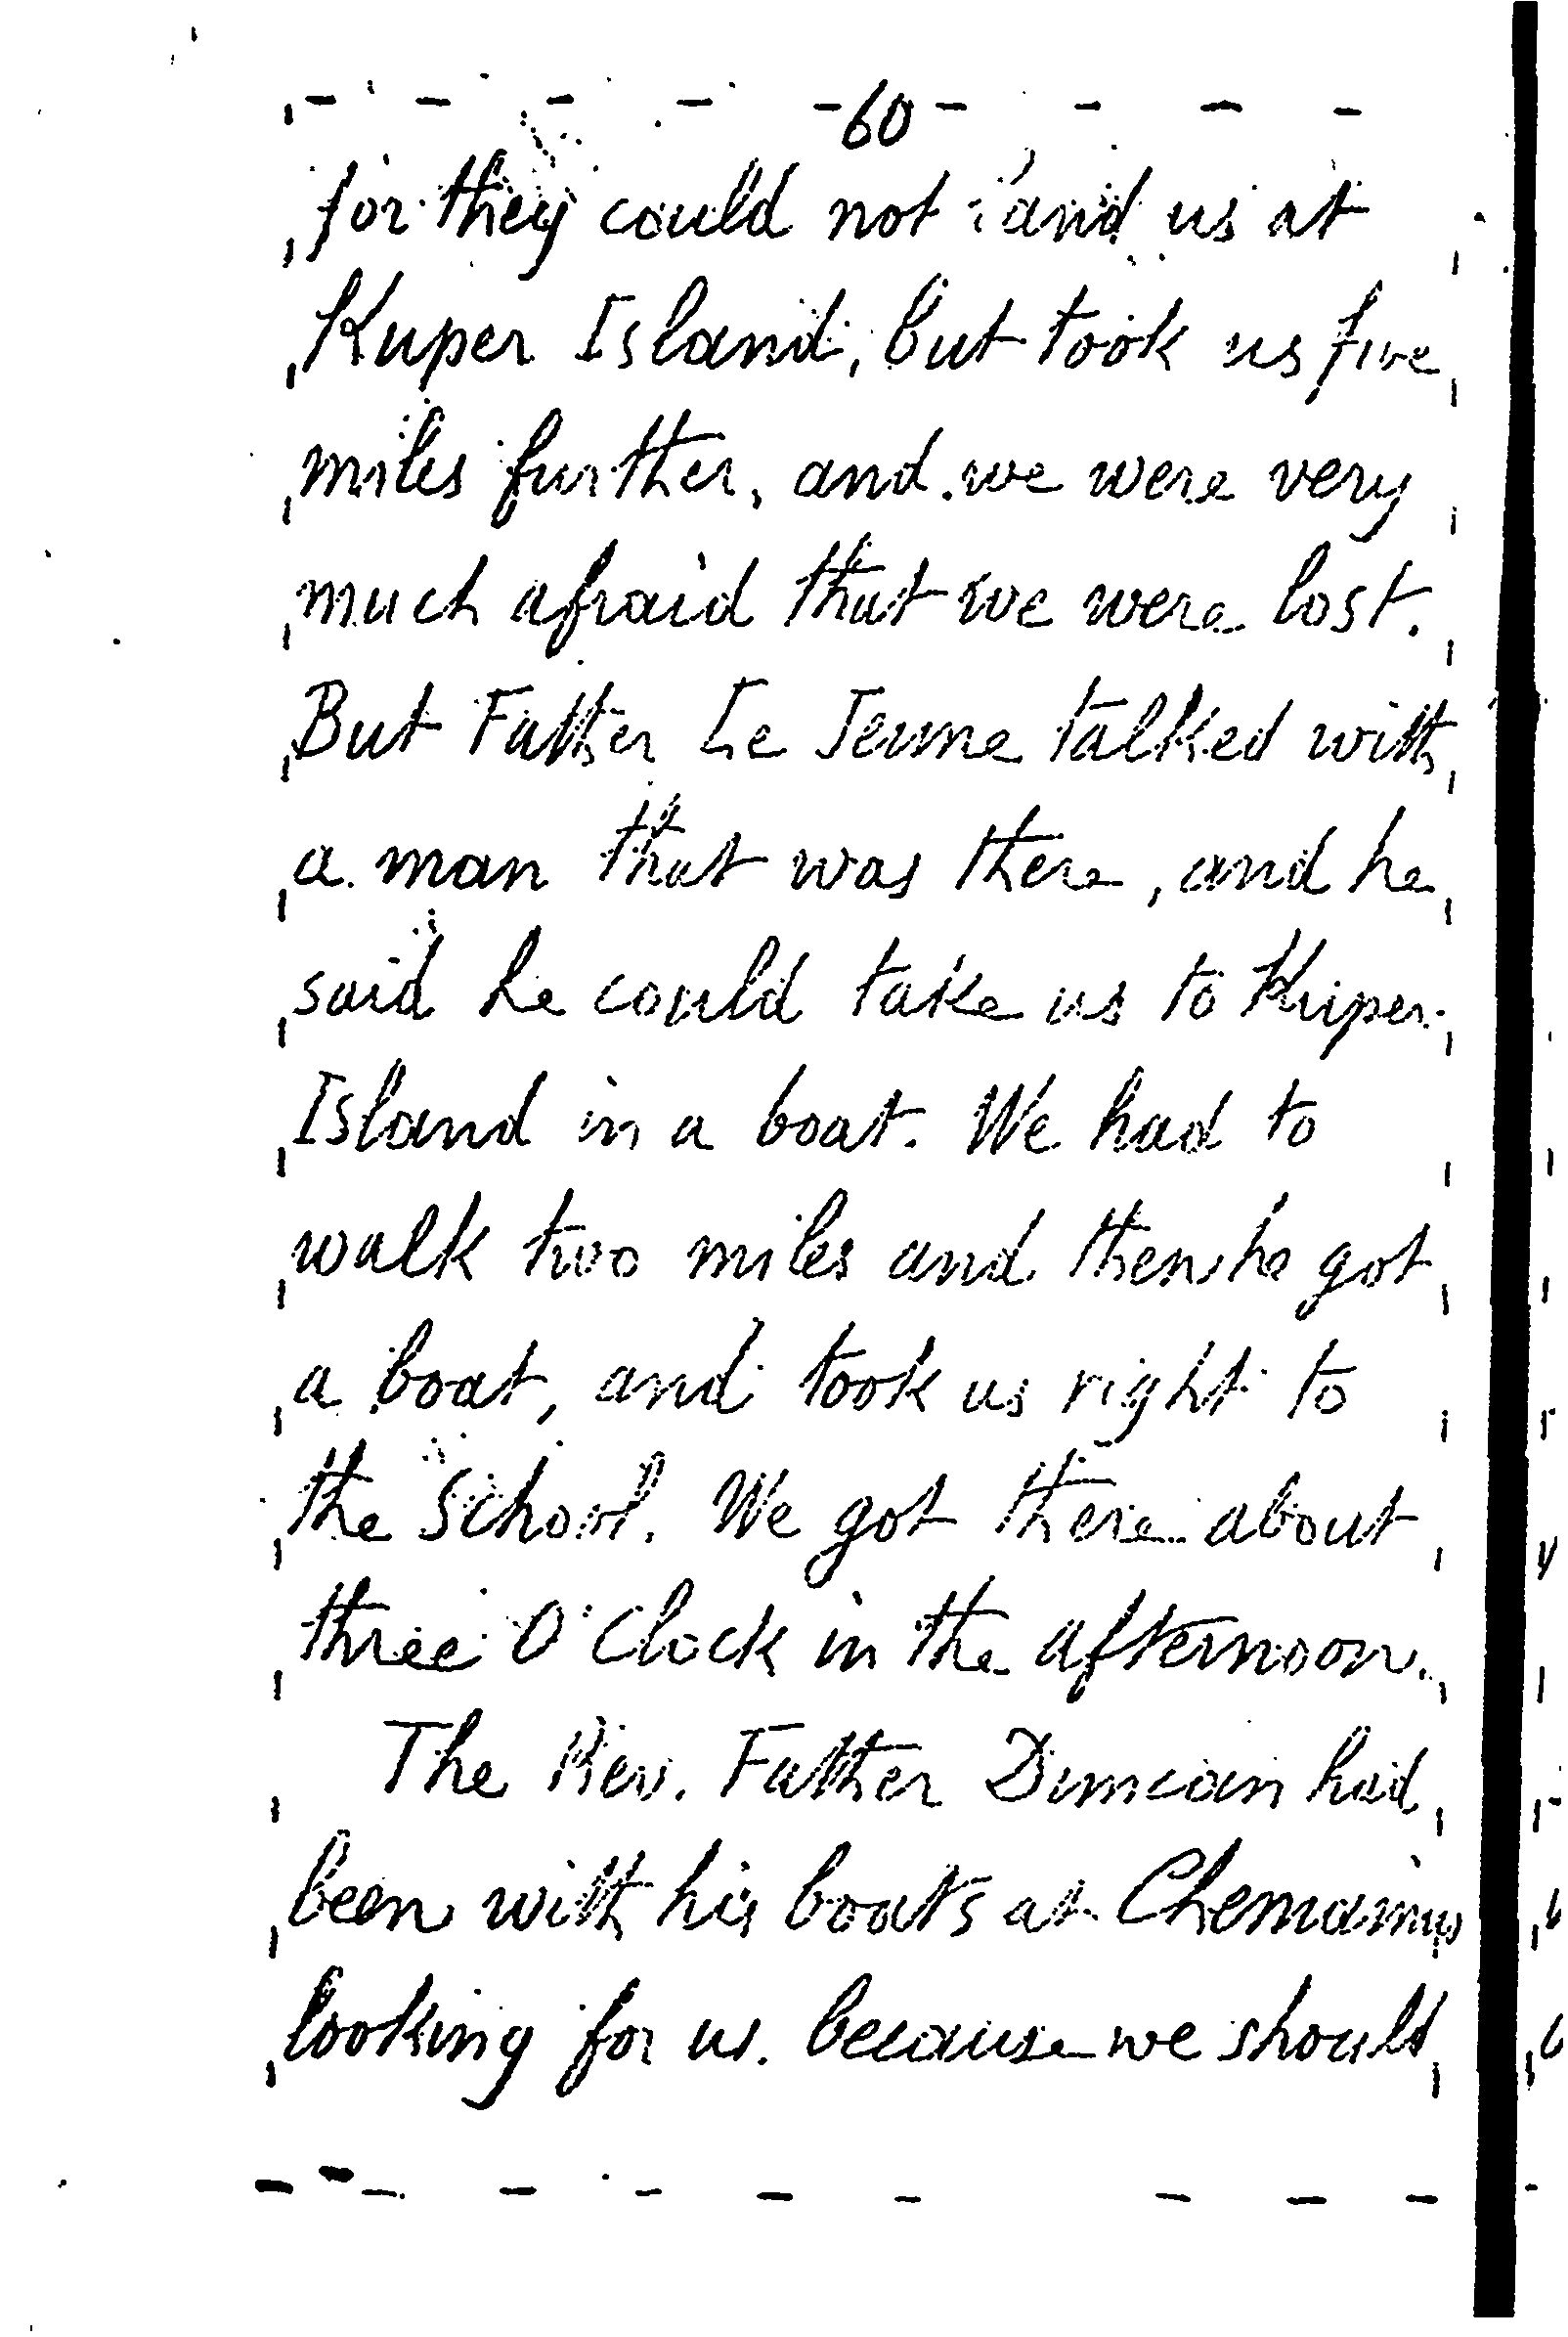 60
for they could not land us at
Kuper Island, but took us five
miles further, and we were very
much afraid that we were lost.
But Father Le Jeune talked with
a man that was there, and he
said he could take us to Kuper
Island in a boat. We had to
walk two miles and then he got
a boat, and took us right to
the School. We got there about
three O'Clock in the afternoon.
The Rev. Father Duncan had
been with his boats at Chemainus
looking for us. because we should